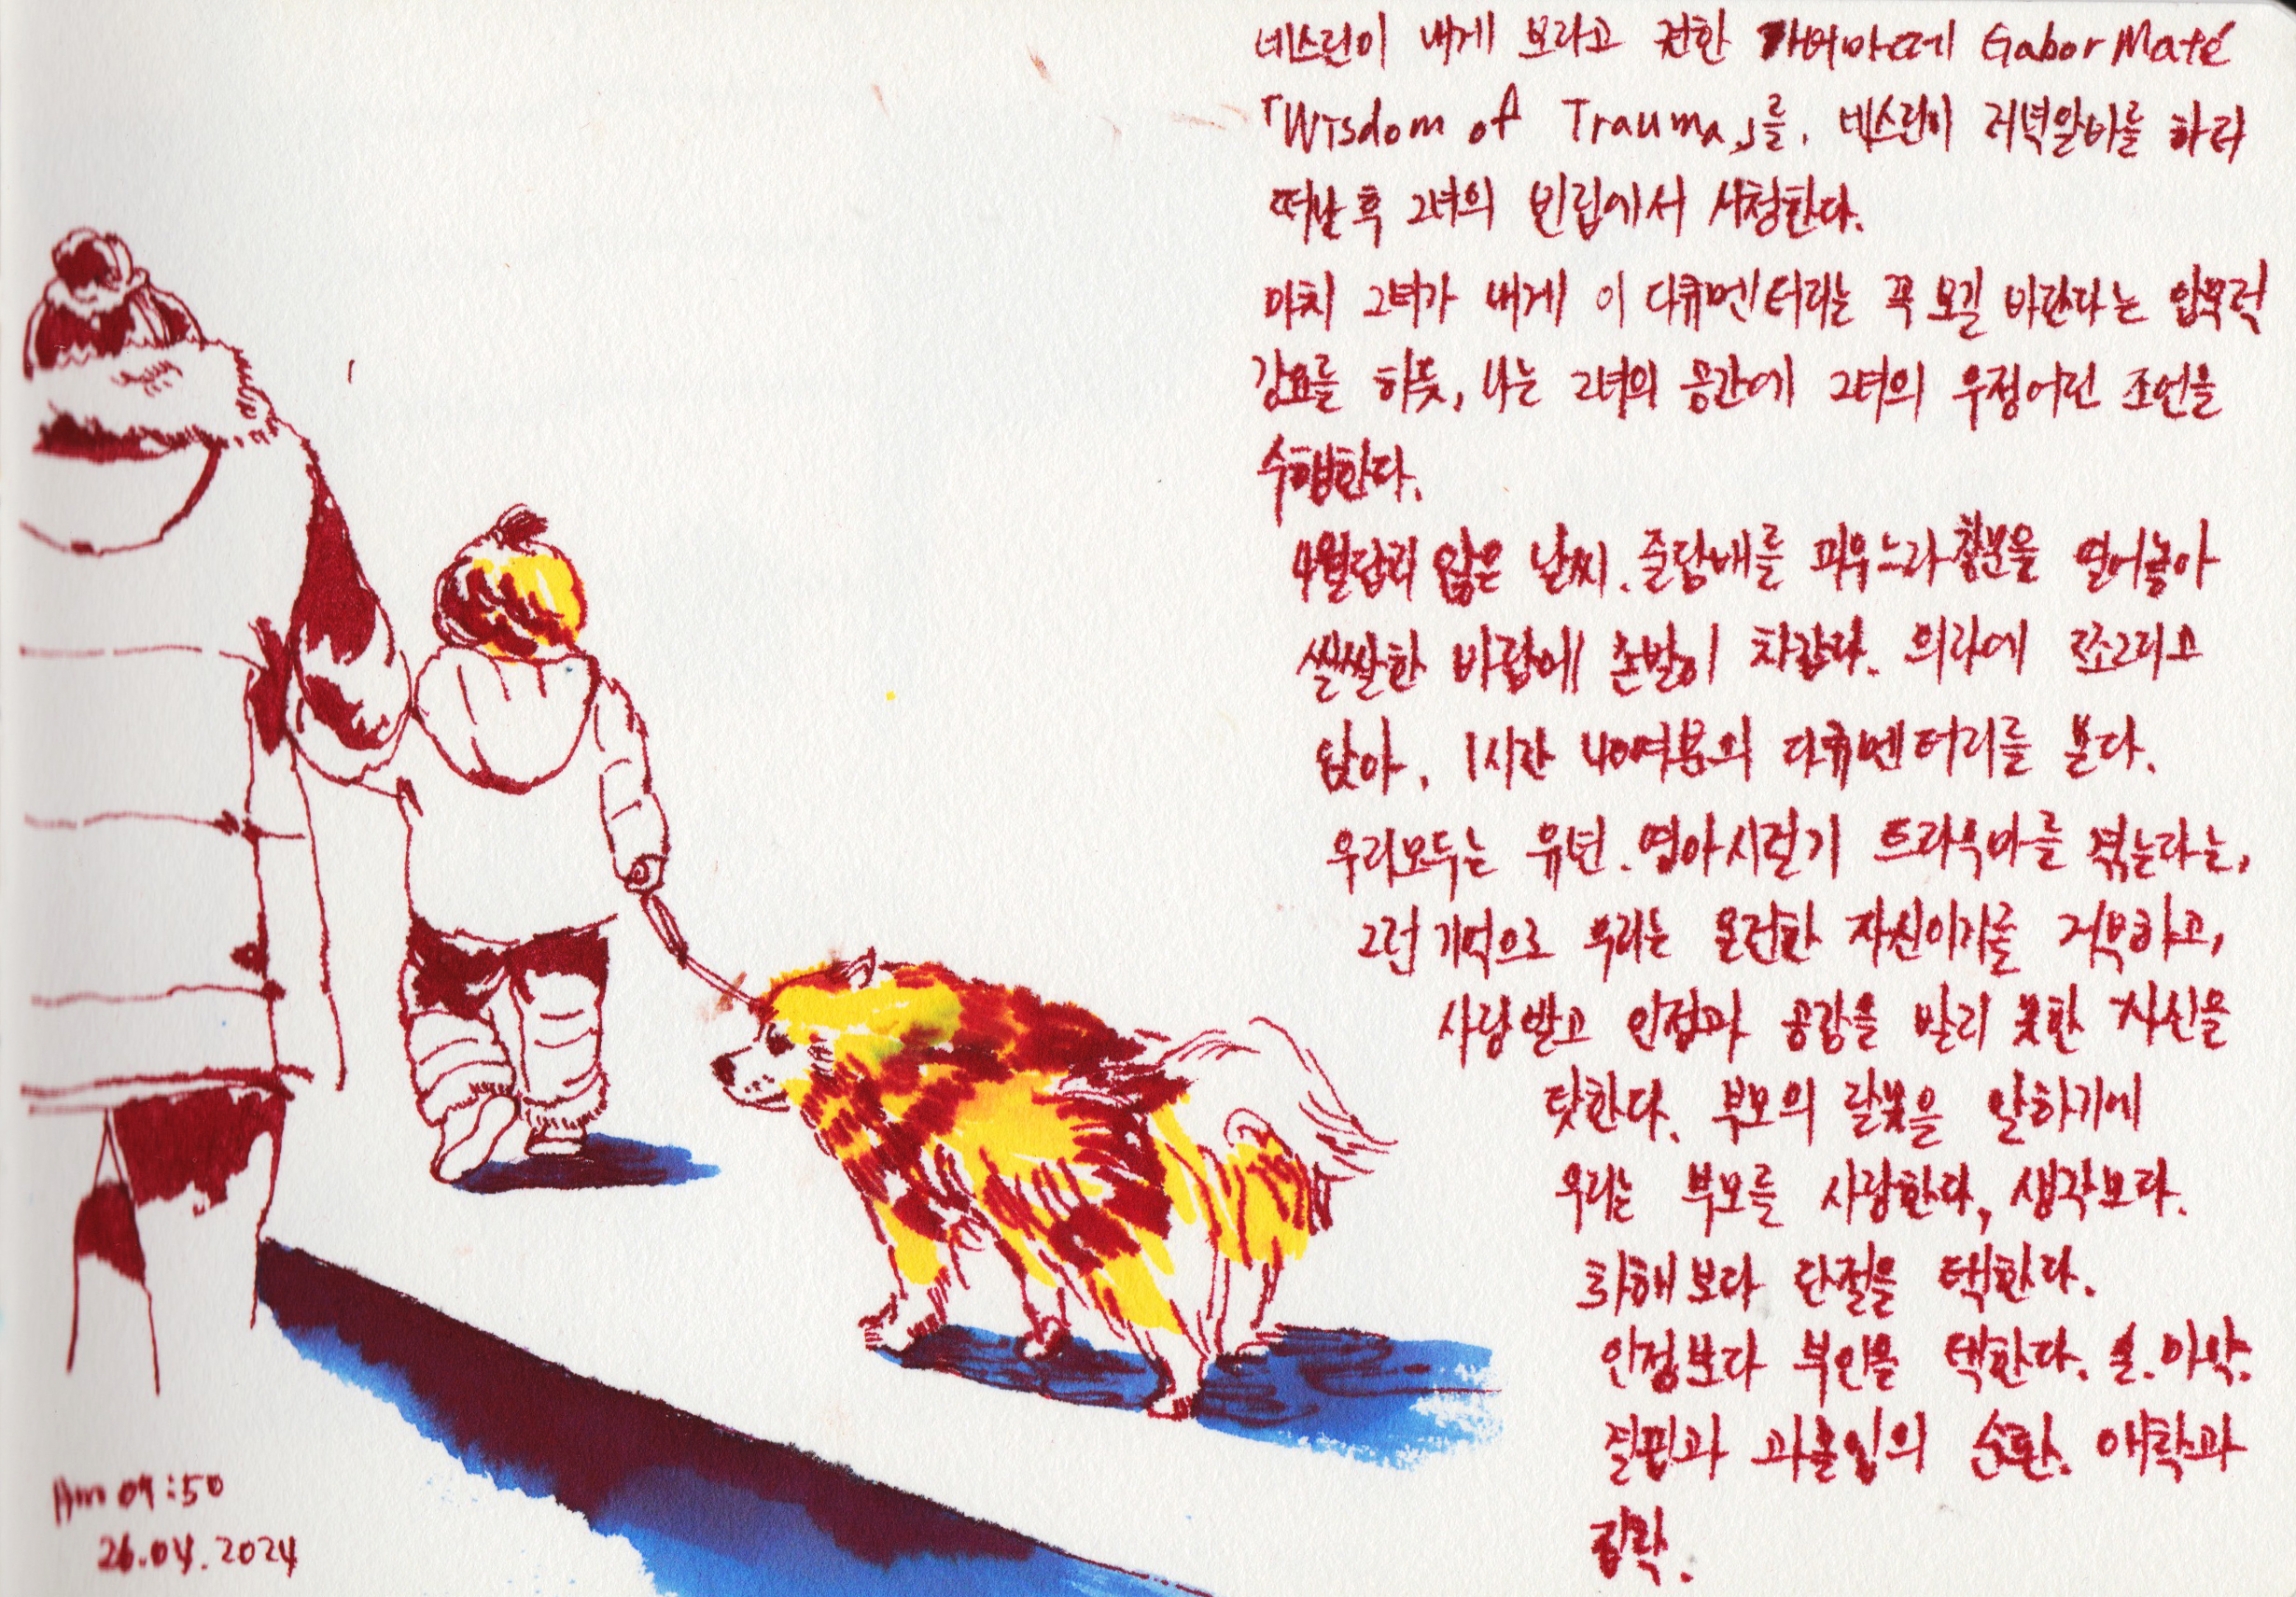 네스린이 내게 보라고 전한 가버마떼 Gabor Maté
「Wisdom of Trauma」를, 네스린이 저녁알바를 하러
떠난 후 그녀의 빈집에서 시청한다.
마치 그녀가 내게 이 다큐멘터리는 꼭 보길 바란다는 압묵적
강요를 하듯, 나는 그녀의 공간에 그녀의 우정어린 조언을
수행한다.
4월답지 않은 날씨. 줄담배를 피우느라 창문을 열어놓아
쌀쌀한 바람에 손발이 차갑다. 의자에 쪼그리고
앉아, 1시간 40여분의 다큐멘터리를 본다.
우리모두는 유년.영아시절기 트라우마를 겪는다는,
그런 기억으로 우리는 온전한 자신이기를 거부하고,
사랑받고 인정과 공감을 받지 못한 자신을
탓한다. 부모의 잘못을 말하기에
우리는 부모를 사랑한다, 생각보다.
화해보다 단절을 택한다.
인정보다 부인을 택한다. 술.마약.
결핍과 과몰입의 순환. 애착과
집착.
Am 09:50
26.04.2024